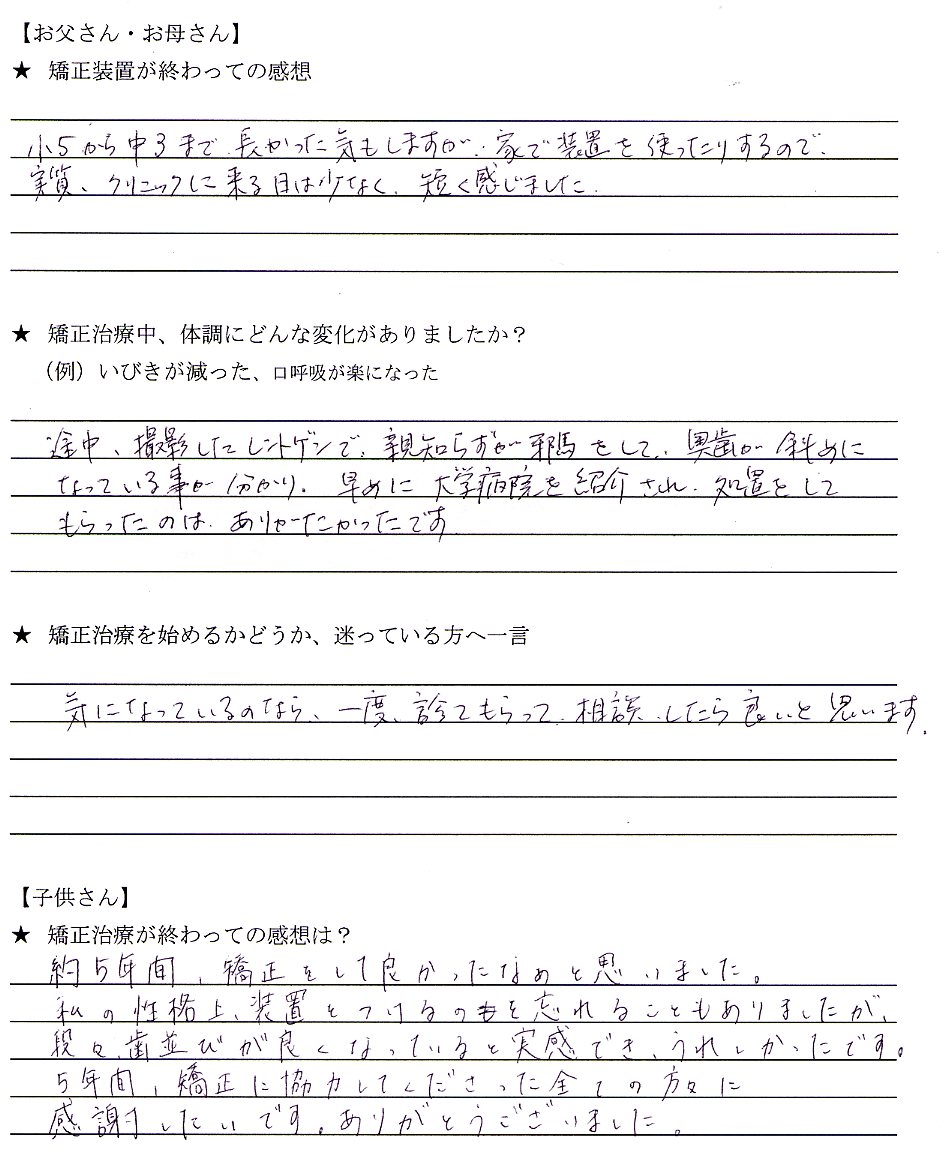 【お父さん・お母さん】
★ 矯正装置が終わっての感想
小5から中3まで、長かった気もしますが、家で装置を使ったりするので、
実質、クリニックに来る日は少なく、短く感じました。
★ 矯正治療中、体調にどんな変化がありましたか？
（例）いびきが減った、口呼吸が楽になった
途中、撮影したレントゲンで、親知らずが邪馬をして、奥歯が斜めに
なっている事が分かり、早めに大学病院を紹介され、処置をして
もらったのは、ありがたかったです
★ 矯正治療を始めるかどうか、迷っている方へ一言
気になっているのなら、一度、診てもらって、相談したら良いと思います。
【子供さん】
★ 矯正治療が終わっての感想は？
約5年間、矯正をして良かったなぁと思いました。
私の性格上、装置をつけるのを忘れることもありましたが、
段々、歯並びが良くなっていると実感でき、うれしかったです。
5年間、矯正に協力してくださった全ての方々に
感謝したいです。ありがとうございました。